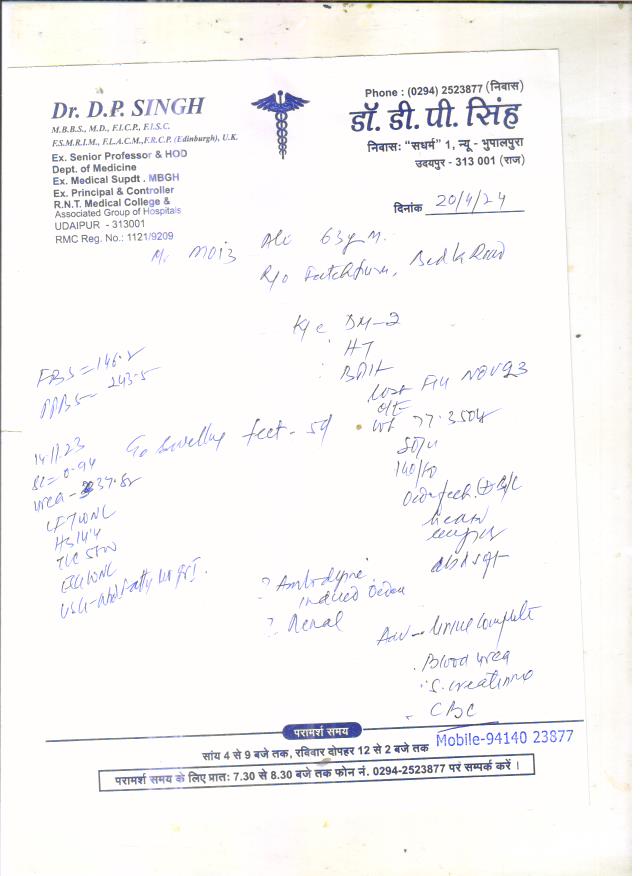 Dr. D.P. SINGH
M.B.B.S., M.D., F.I.C.P., F.I.S.C.
F.S.M.R.I.M., F.L.A.C.M., F.R.C.P. (Edinburgh), U.K.
Ex. Senior Professor & HOD
Dept. of Medicine
Ex. Medical Supdt . MBGH
Ex. Principal & Controller
R.N.T. Medical College &
Associated Group of Hospitals
UDAIPUR - 313001
RMC Reg. No.: 1121/9209
Phone : (0294) 2523877 (निवास)
डॉ. डी. पी. सिंह
निवास: “सधर्म” 1, न्यू - भुपालपुरा
उदयपुर - 313 001 (राज)
दिनांक 20/4/24
Mr. Moiz Ali 63y M.
R/o Fatehpura, Bedla Road
K/c DM-2
HT
FBS = 146.2
PPBS - 243.5
Last F/U NOV 23
O/E
Wt 77.350
140/80
14.11.23
SC = 0.94
urea - 37.82
LFT WNL
Hb 14.4
TLC
ECG WNL
USG - Abd Fatty
Swelling feet - 5d
Heart
Lungs
Abd
? Amlodipine
induced
? Renal
Adv - Urine Complete
Blood urea
S. Creatinine
CBC
परामर्श समय
सांय 4 से 9 बजे तक, रविवार दोपहर 12 से 2 बजे तक
Mobile-94140 23877
परामर्श समय के लिए प्रात: 7.30 से 8.30 बजे तक फोन नं. 0294-2523877 पर सम्पर्क करें ।